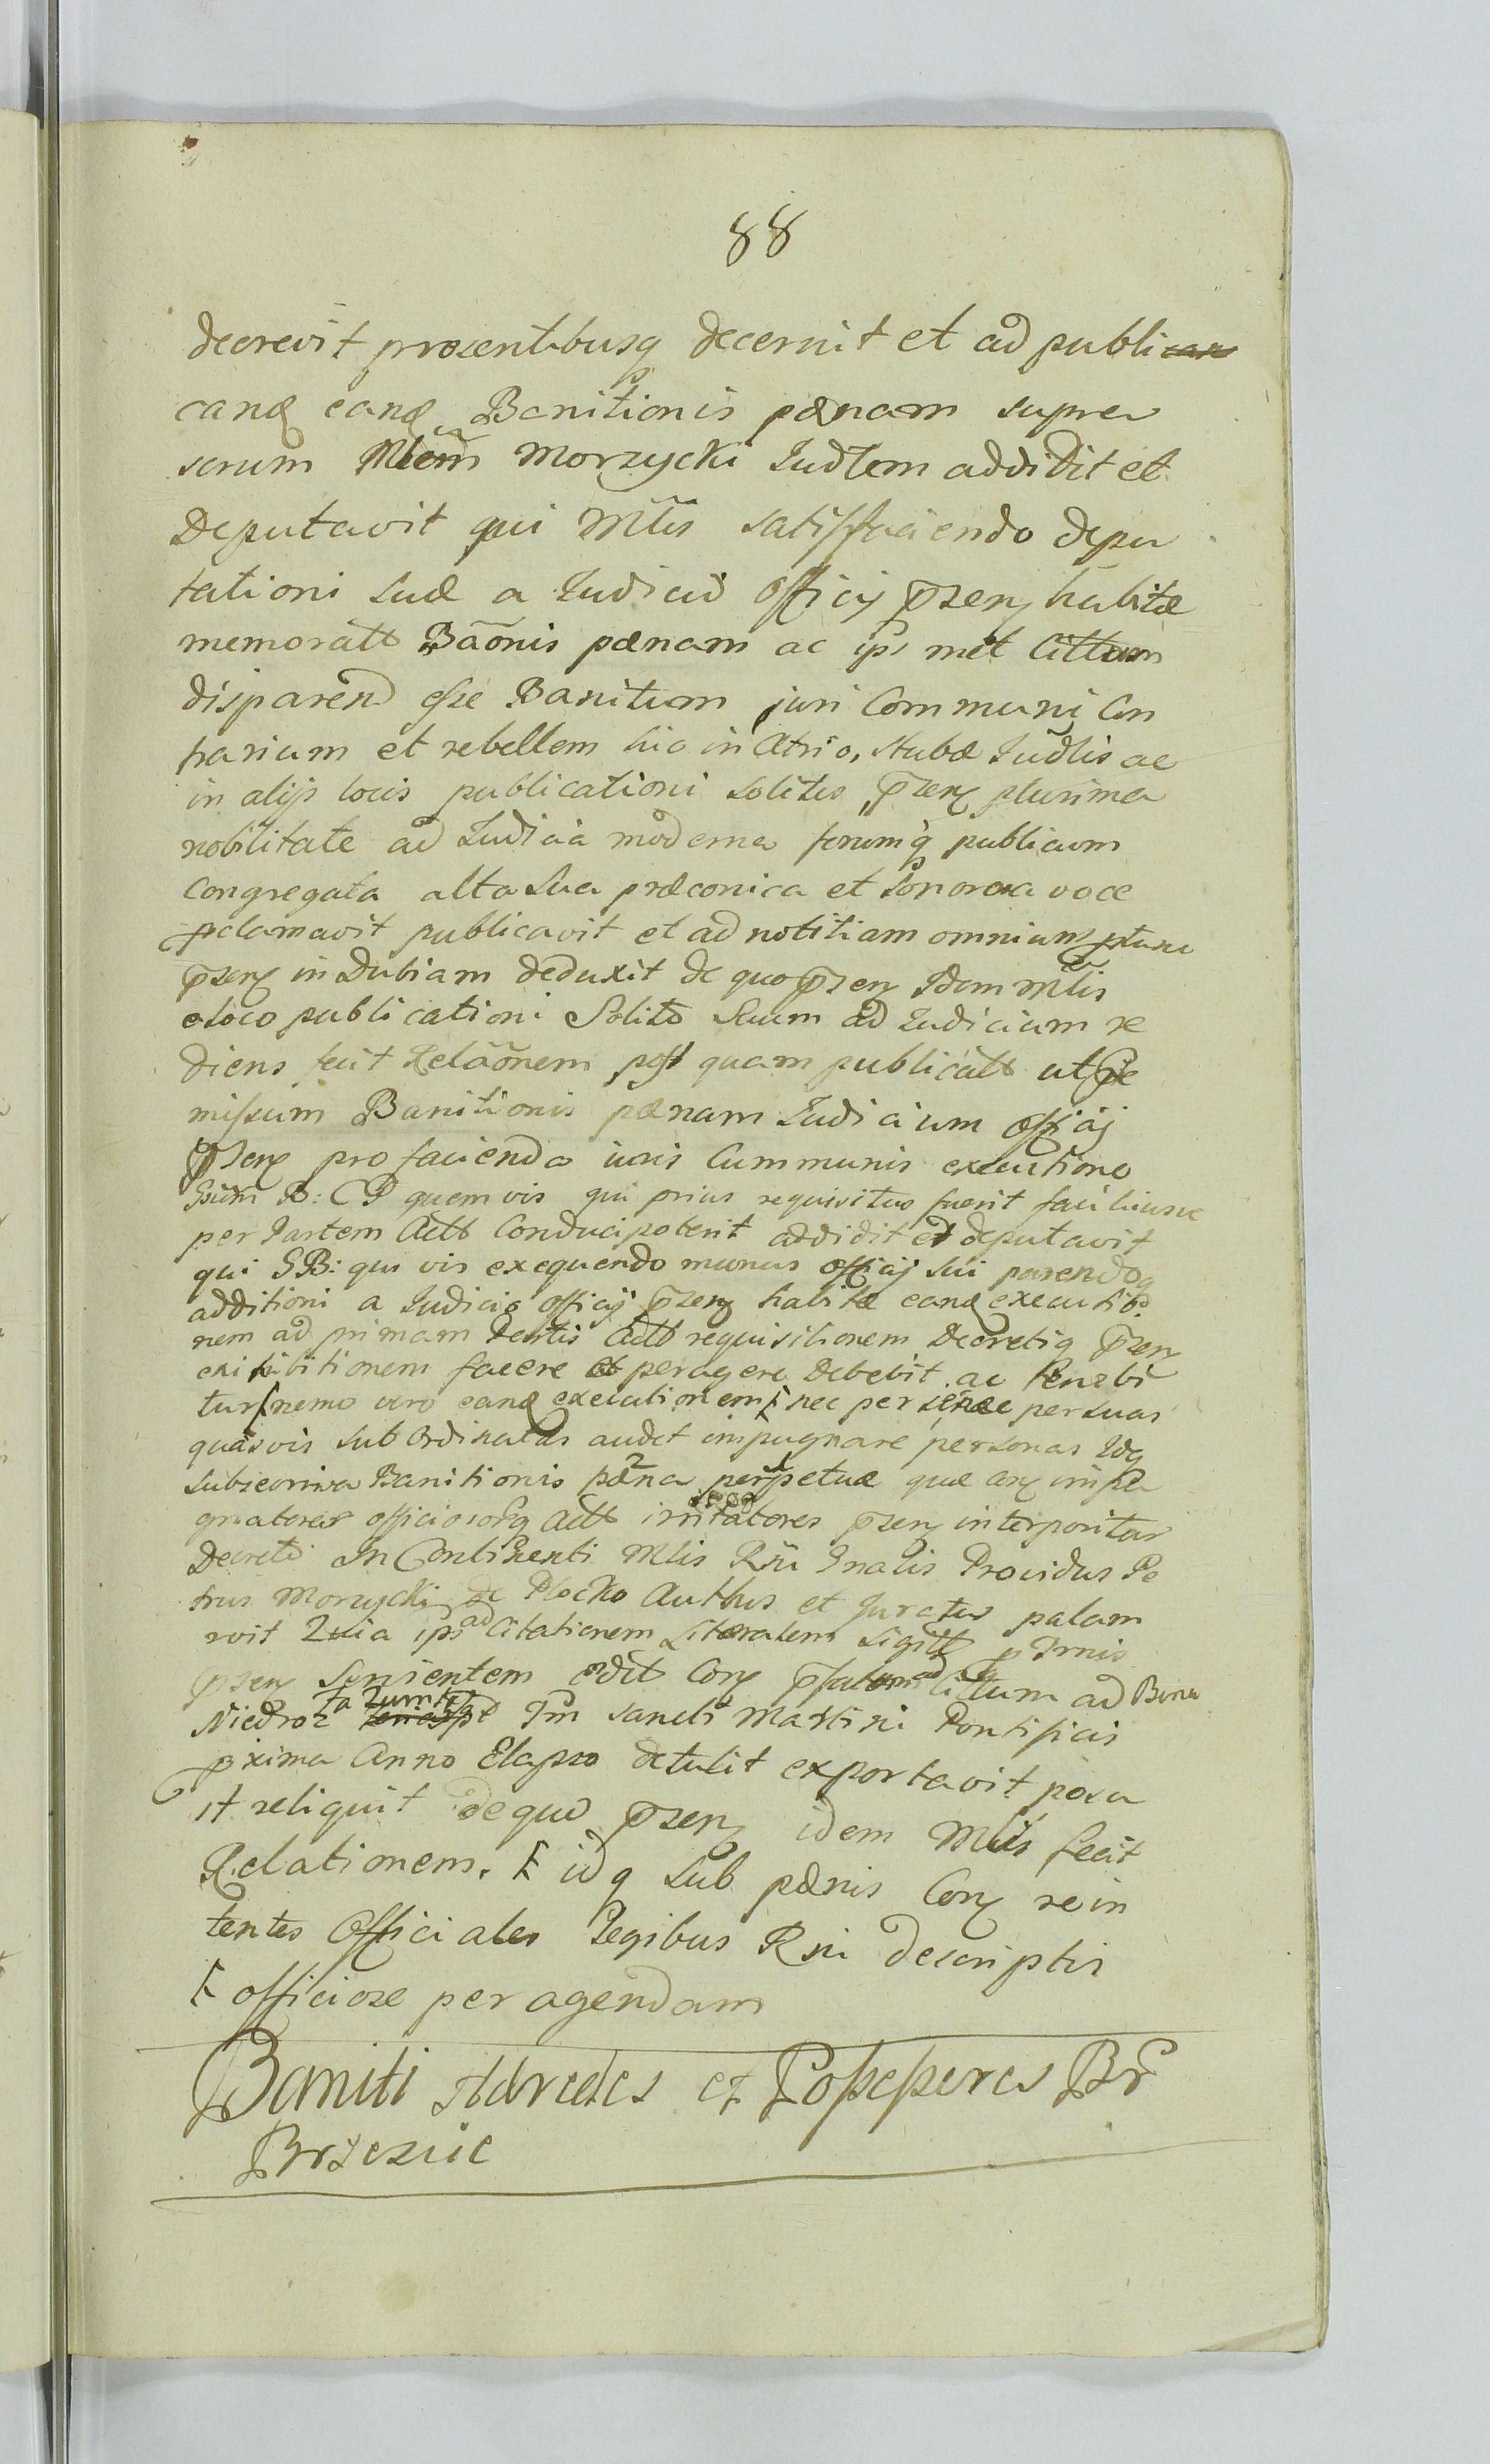 88
decrevit prozentibusq decernit et ad publi
cand eand Banitionis pænam supra
scrum Mlem Morzycki Iudlem addidit et
Deputavit qui Mlis satisfaciendo depu
tationi suæ a Iudicio Officij pzen habitæ
memoratt Baonis pænam ac ips met Cittum
disparend esse Banitum juri Communi Con
trarium et rebellem hic in Atrio, stubæ Iudlis ac
in alijs locis publicationi solitis pzen plurima
nobilitate ad Iudicia moderna forumq publicum
Congregata alta sua præconica et sonora voce
pclamavit publicavit et ad notitiam omnium
pzen in Dubiam deduxit de quo pzen Idem Mlis
e loco publicationi Solito suum ad Iudicium re
diens fecit Relaonem post quam publicatt ut
missum Banitionis pænam Iudicium Officij
pzen pro facienda iuris Cummunis executione
B: C P quem vis qui prius requisitus fuerit faciliusve
per Partem Actt Conduci poterit addidit et deputavit
qui GB: qui vis exequendo munus officij sui parendoq
additioni a Iudicio officij pzen habitæ eand executio
nem ad primam Actt requisitionem Decretiq pzen
exihibitionem facere et peragere Debebit ac tenebi
tur nemo vero eand executionem nec per se nec per suas
quasvis subordinatas audet impugnare personas Idq
sub Banitionis pæna perpetuæ quæ con impu
gnatores Actt irritatores pzen interponitur
Decreto In Continenti Mlis Rni Gnalis Providus Pe
trus Morzycki de Plocko Authus et Juratus palam
vit Quia ips ad Citationem Literalem sigitt p Imis
pzen servientem edit Con ad ad Bona
Niedroz Im sancti Martini Pontificis
pxima Anno Elapso detulit exportavit posu
it reliquit de quo pzen idem Mlis fecit
Relationem. F idq sub pænis Con rein
tentes Officiales legibus Rni descriptis
F officiose peragendam
Baniti Hæredes et Possessores Br
Brzezie